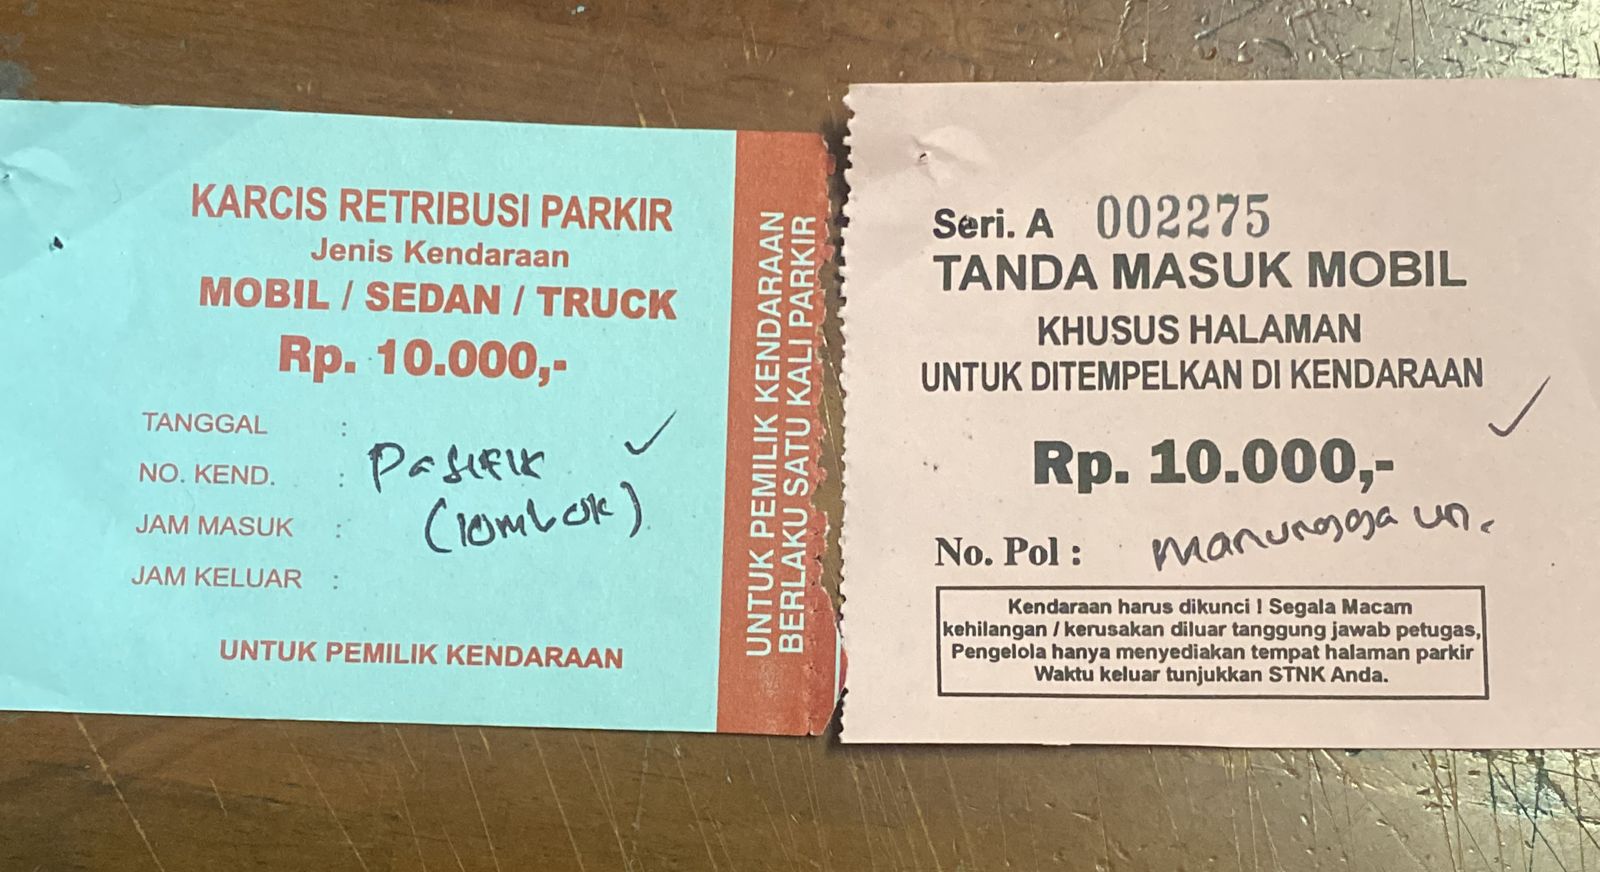 KARCIS RETRIBUSI PARKIR
Jenis Kendaraan
MOBIL / SEDAN / TRUCK
Rp. 10.000,-
TANGGAL :
NO. KEND. : Pasifik
JAM MASUK : (lombok)
JAM KELUAR :
UNTUK PEMILIK KENDARAAN
UNTUK PEMILIK KENDARAAN
BERLAKU SATU KALI PARKIR
Seri. A 002275
TANDA MASUK MOBIL
KHUSUS HALAMAN
UNTUK DITEMPELKAN DI KENDARAAN
Rp. 10.000,-
No. Pol :
Kendaraan harus dikunci ! Segala Macam
kehilangan / kerusakan diluar tanggung jawab petugas,
Pengelola hanya menyediakan tempat halaman parkir
Waktu keluar tunjukkan STNK Anda.